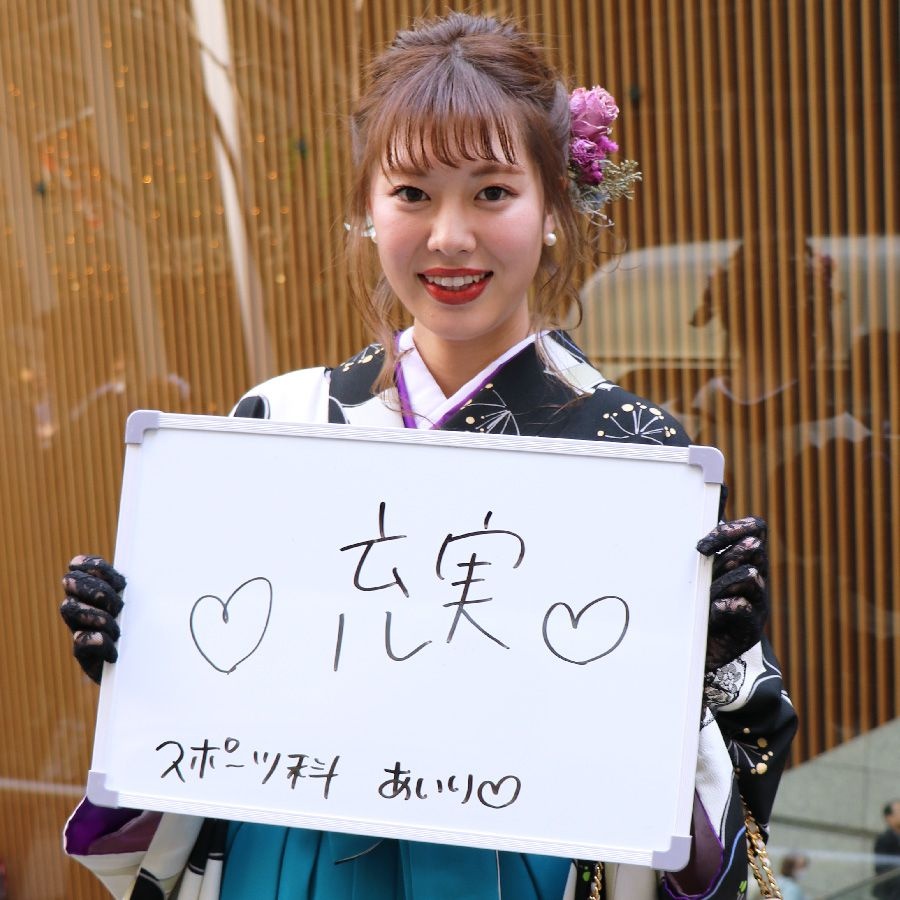 ♡ 充実 ♡
スポーツ科 あいり♡